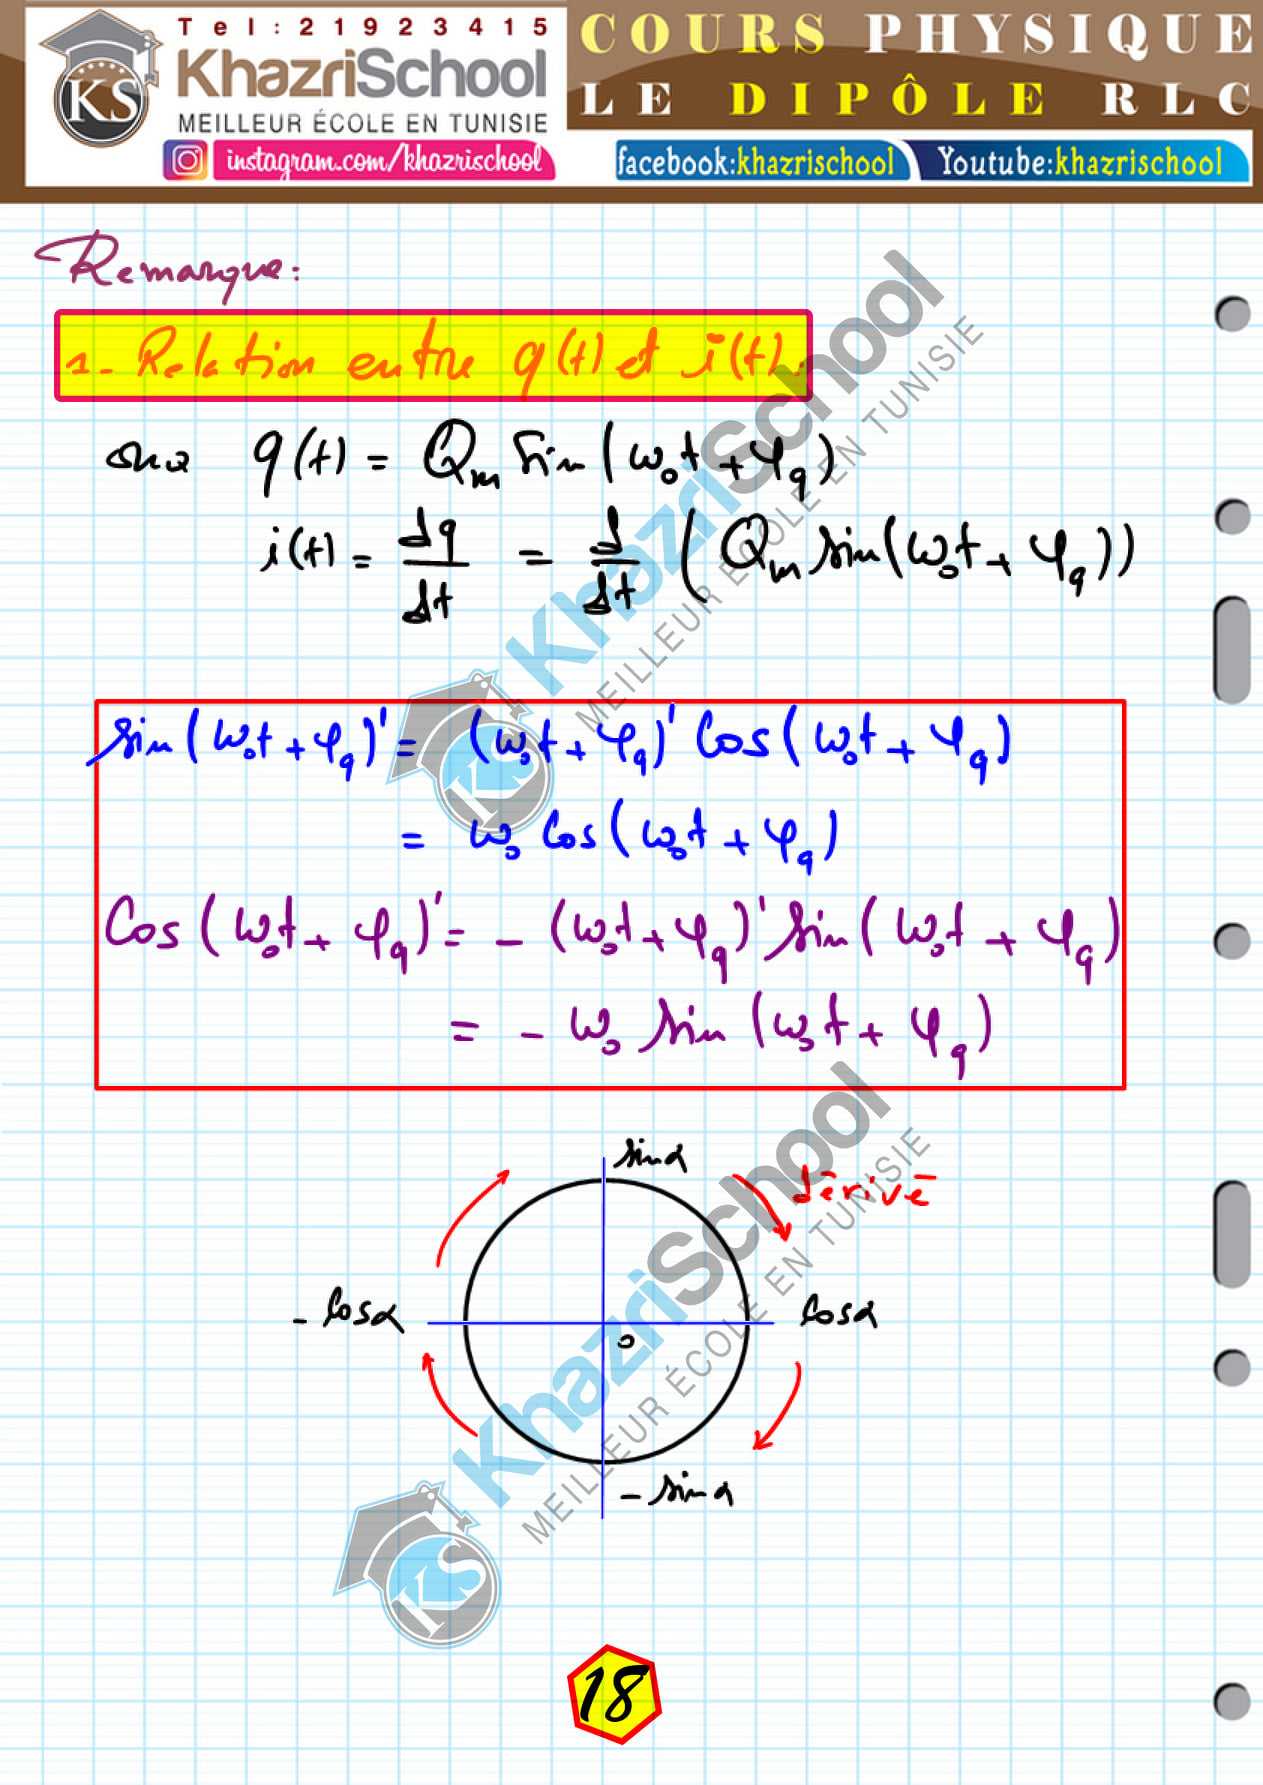 Tel:21923415
KhazriSchool
MEILLEUR ÉCOLE EN TUNISIE
KS
instagram.com/khazrischool
COURS PHYSIQUE
LE DIPÔLE RLC
facebook:khazrischool
Youtube:khazrischool
Remarque:
1- Relation entre q(t) et i(t).
on a q(t) = Qm Sin(ω₀t + φq)
i(t) = dq/dt = d/dt (Qm sin(ω₀t + φq))
sin(ω₀t + φq)' = (ω₀t + φq)' Cos(ω₀t + φq)
= ω₀ Cos(ω₀t + φq)
Cos(ω₀t + φq)' = - (ω₀t + φq)' sin(ω₀t + φq)
= - ω₀ sin(ω₀t + φq)
sinα
dérivé
- Cosα
Cosα
o
- sinα
18
KhazriSchool
MEILLEUR ÉCOLE EN TUNISIE
KS
KhazriSchool
MEILLEUR ÉCOLE EN TUNISIE
KS